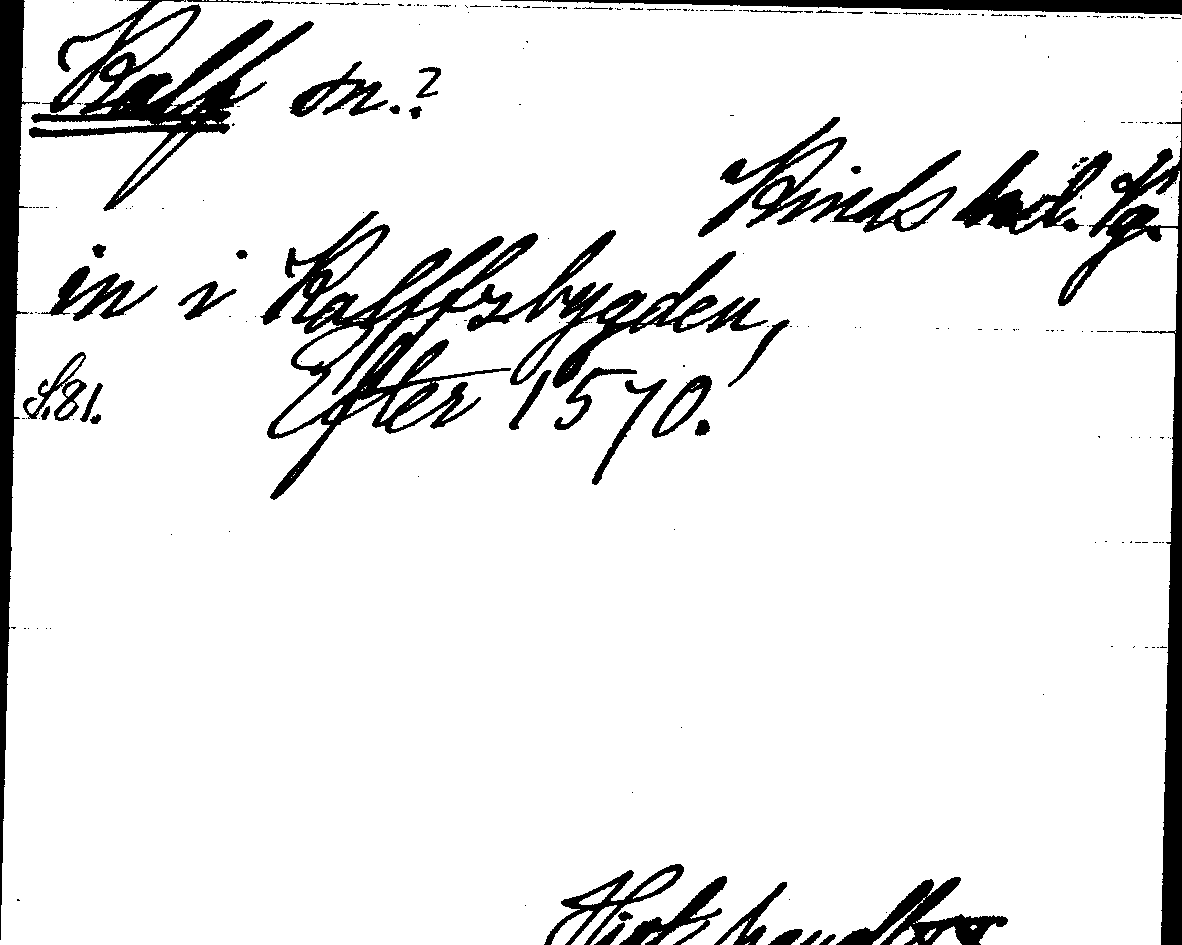 Kalf sn.?
Kinds hd. Vg.
in i Kalffsbygden,
S.81. Efter 1570.
Hist. handl.